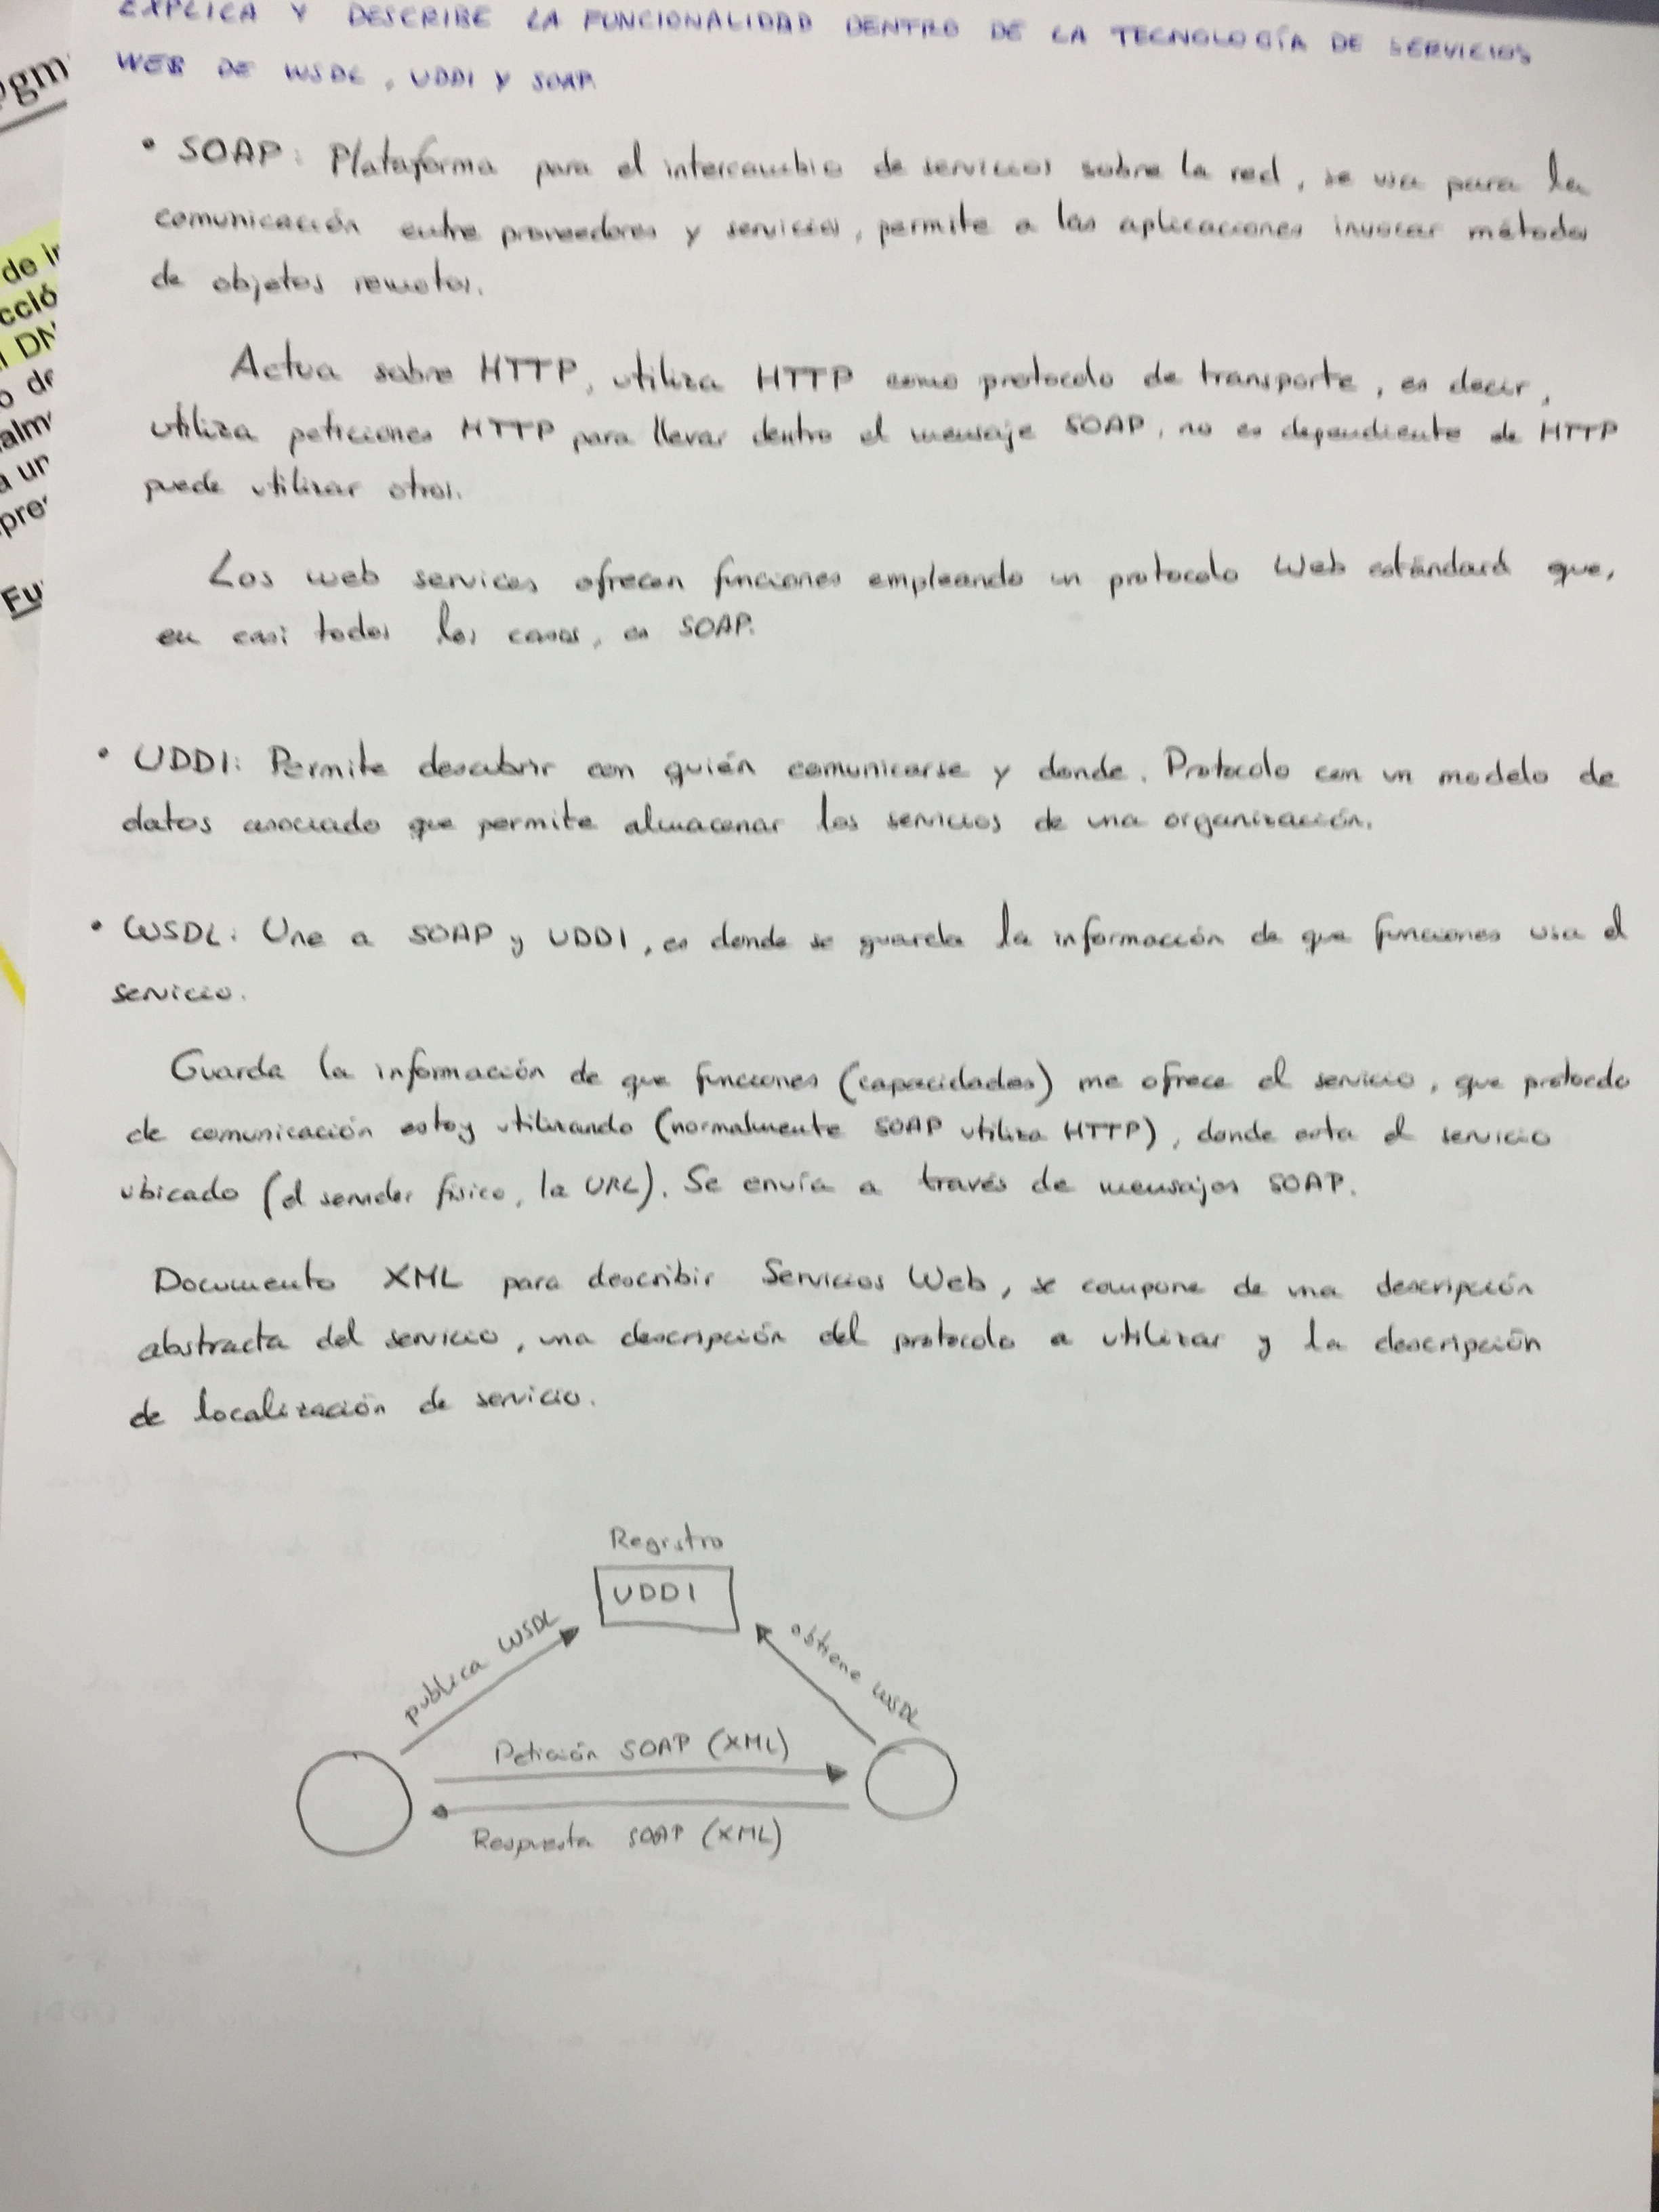 EXPLICA Y DESCRIBE LA FUNCIONALIDAD DENTRO DE LA TECNOLOGÍA DE SERVICIOS
WEB DE WSDL, UDDI Y SOAP.
• SOAP: Plataforma para el intercambio de servicios sobre la red, se usa para la
comunicación entre proveedores y servicios, permite a las aplicaciones invocar métodos
de objetos remotos.
Actua sobre HTTP, utiliza HTTP como protocolo de transporte, es decir,
utiliza peticiones HTTP para llevar dentro el mensaje SOAP, no es dependiente de HTTP
puede utilizar otros.
Los web services ofrecen funciones empleando un protocolo Web estándard que,
en casi todos los casos, es SOAP.
• UDDI: Permite descubrir con quién comunicarse y donde. Protocolo con un modelo de
datos asociado que permite almacenar los servicios de una organización.
• WSDL: Une a SOAP y UDDI, es donde se guarda la información de que funciones usa el
servicio.
Guarda la información de que funciones (capacidades) me ofrece el servicio, que protocolo
de comunicación estoy utilizando (normalmente SOAP utiliza HTTP), donde esta el servicio
ubicado (el servidor físico, la URL). Se envía a través de mensajes SOAP.
Documento XML para describir Servicios Web, se compone de una descripción
abstracta del servicio, una descripción del protocolo a utilizar y la descripción
de localización de servicio.
Registro
UDDI
publica WSDL
obtiene WSDL
Petición SOAP (XML)
Respuesta SOAP (XML)
de in
cció
DN
o de
alm
a un
pre
Fu